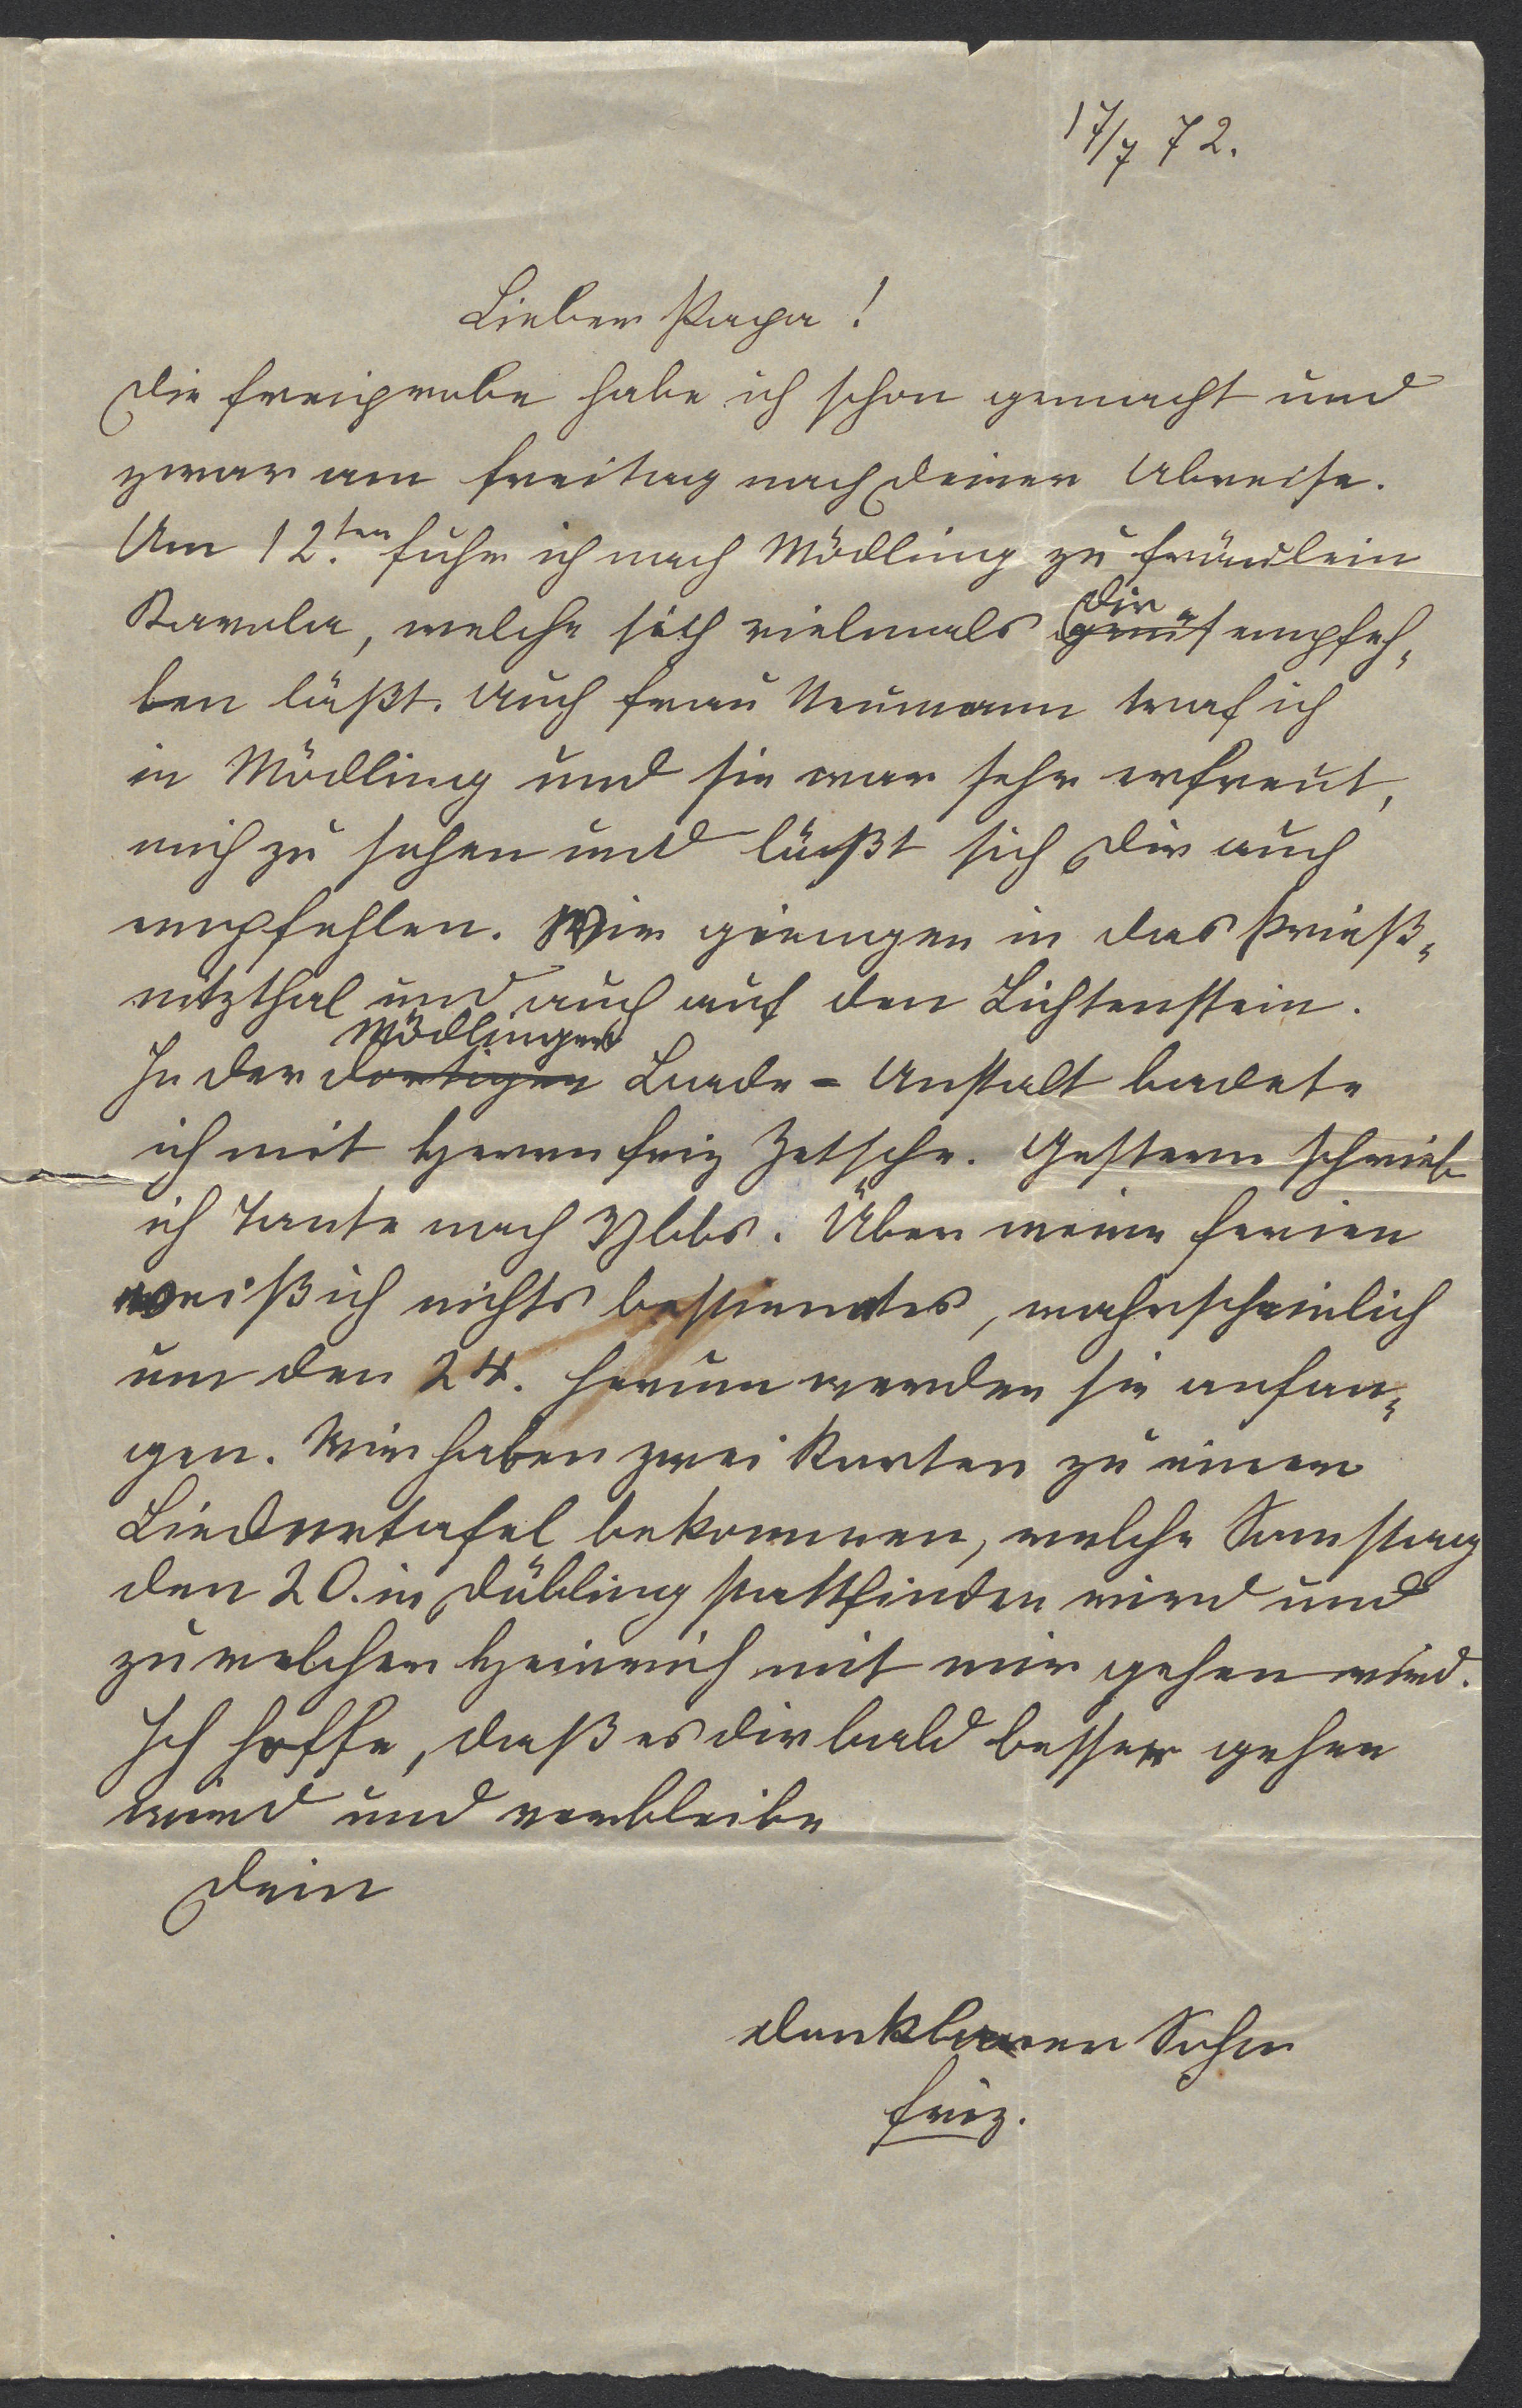 17/7 72.
Lieber Papa!
Die Freiprobe habe ich schon gemacht und
zwar am Freitag nach Deiner Abreise.
Am 12.ten fuhr ich nach Mödling zu Fräulein
Karola, welche sich vielmals Dir empfeh-
len läßt. Auch Frau Neumann traf ich
in Mödling und sie war sehr erfreut,
mich zu sehen und läßt sich Dir auch
empfehlen. Wir giengen in das Prieß-
nitzthal und auch auf den Lichtenstein.
In der dortigen Mödlinger Bade-Anstalt badete
ich mit Herrn Friz Zetsche. Gestern schrieb
ich Tante nach Ybbs. Über meine Ferien
weiß ich nichts bestimmtes, wahrscheinlich
um den 24. herum werden sie anfan-
gen. Wir haben zwei Karten zu einer
Liedertafel bekommen, welche Samstag
den 20. in Döbling stattfinden wird und
zu welcher Heinrich mit mir gehen wird.
Ich hoffe, daß es dir bald besser gehen
wird und verbleibe
Dein
dankbarer Sohn
Friz.